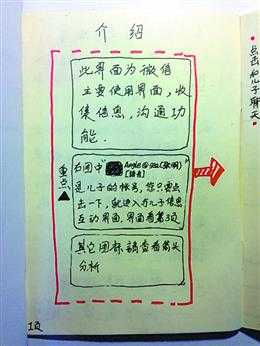 介绍
此界面为微信
主要使用界面，收
集信息，沟通功
能.
右图中"
Angle@sea(张明)
[语音]"
是儿子的帐号，您只要点
击一下，就进入与儿子信息
互动界面.界面看第3页
其它图标请查看箭头
分析
重点
点击和儿子聊天
1页